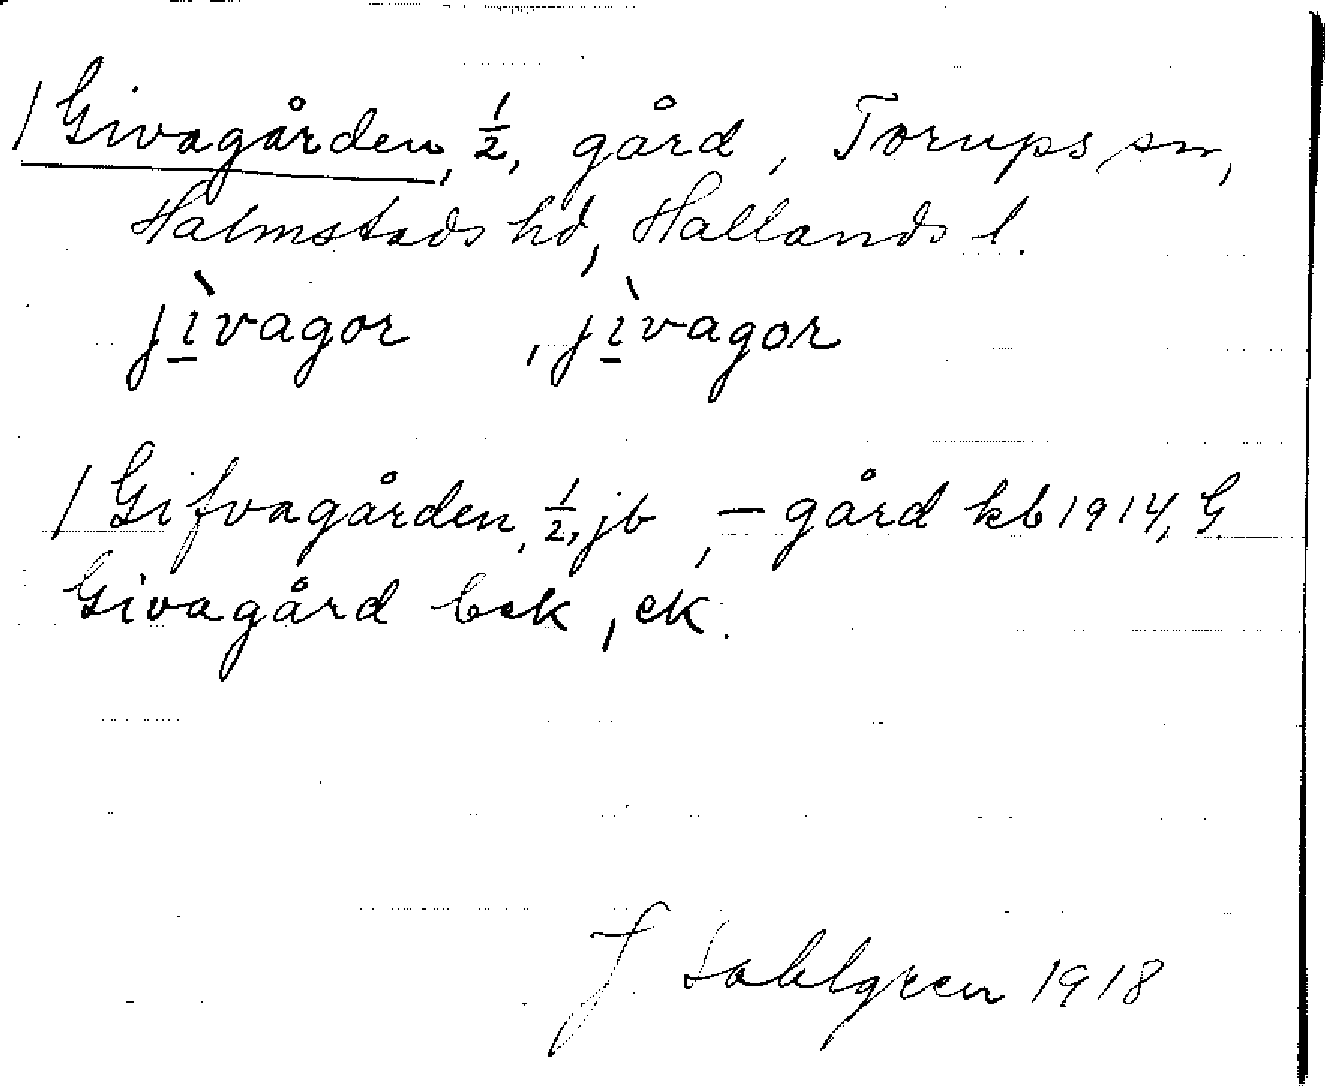 / Givagården, ½, gård, Torups sn,
Halmstads hd, Hallands l.
jìvagor , jìvagor
/ Gifvagården, ½, jb , – gård kb 1914, G.
Givagård bek, ek.
J. Sahlgren 1918